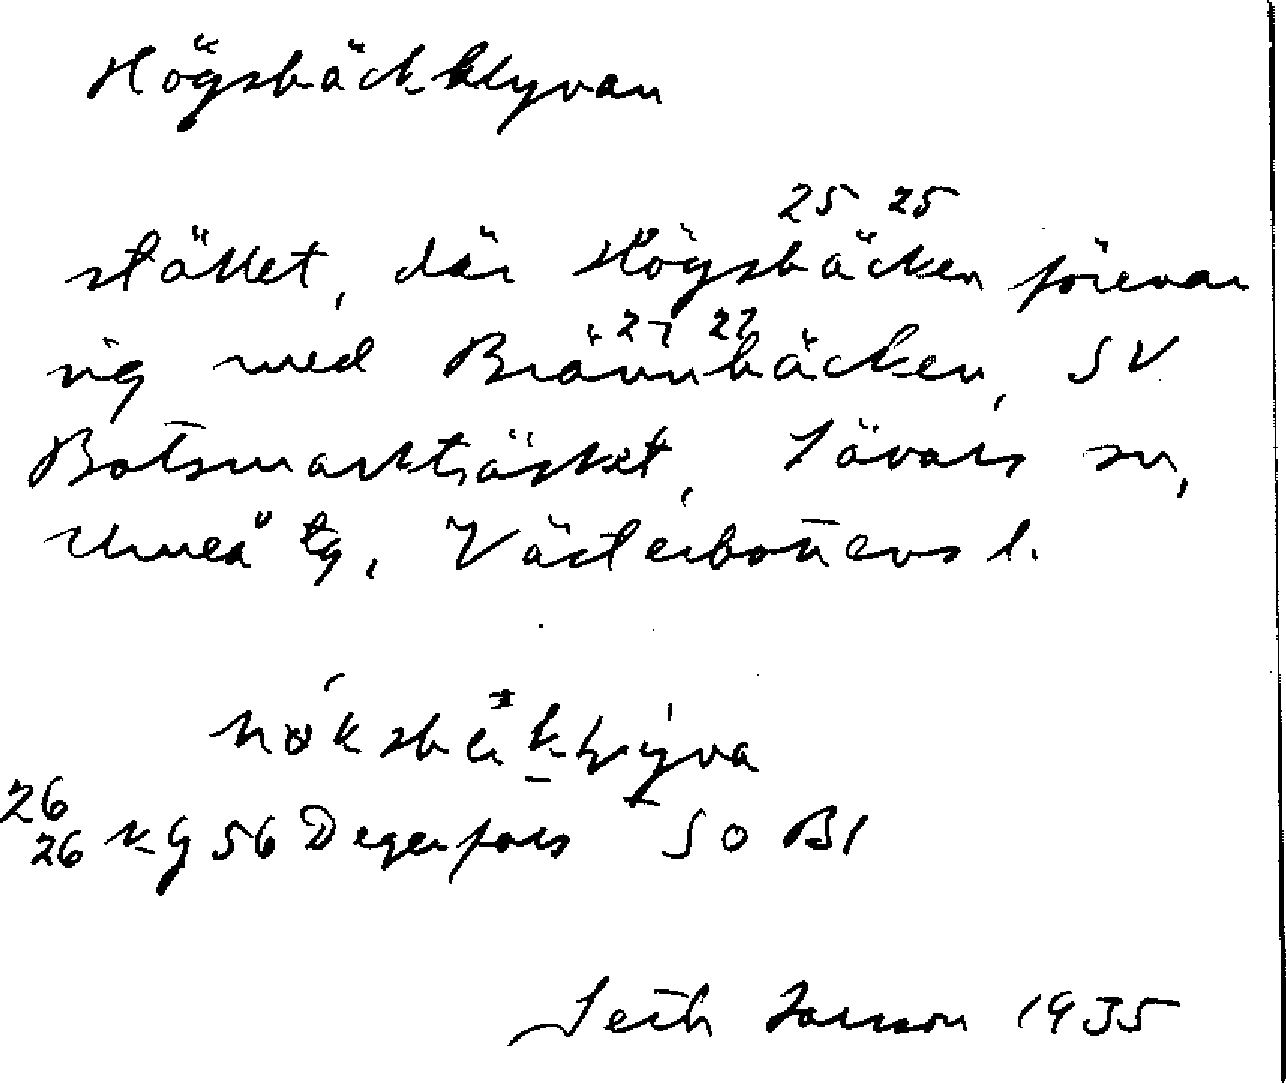 Högsbäckklyvan
25 25
stället, där Högsbäcken förenar
27 27
sig med Brännbäcken, SV
Botsmarkträsket, Sävars sn,
Umeå tg, Västerbottens l.
26
26 kg 56 Degerfors SO Bl
Seth Jansson 1935